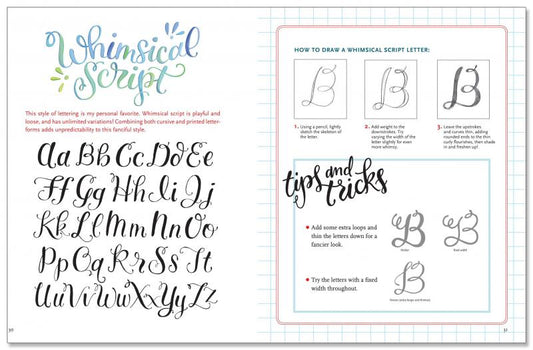 Whimsical
Script
This style of lettering is my personal favorite. Whimsical script is playful and
loose, and has unlimited variations! Combining both cursive and printed letter-
forms adds unpredictability to this fanciful style.
Aa Bb Cc Dd Ee
Ff Gg Hh Ii Jj
Kk Ll Mm Nn Oo
Pp Qq Rr Ss Tt
Uu Vv Ww Xx Yy Zz
HOW TO DRAW A WHIMSICAL SCRIPT LETTER:
B B B
1. Using a pencil, lightly
sketch the skeleton of
the letter.
2. Add weight to the
downstrokes. Try
varying the width of the
letter slightly for even
more whimsy.
3. Leave the upstrokes
and curves thin, adding
rounded ends to the thin
curly flourishes, then shade
in and freshen up!
tips and
tricks
Add some extra loops and
thin the letters down for a
fancier look.
B B
Try the letters with a fixed
width throughout.
B